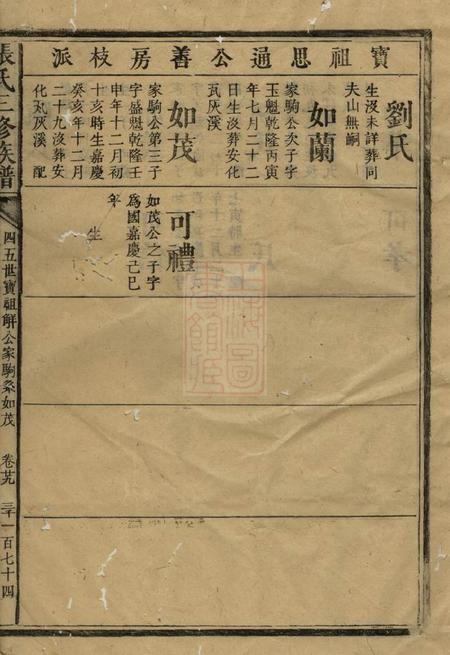 寶祖思通公善房枝派
劉氏
生沒未詳葬同
夫山無嗣
如蘭
家駒公次子字
玉魁乾隆丙寅
年七月二十二
日生沒葬安化
瓦灰溪
如茂
家駒公第三子
字盛魁乾隆壬
申年十二月初
十亥時生嘉慶
癸亥年十二月
二十九沒葬安
化瓦灰溪 配
可禮
如茂公之子字
為國嘉慶己巳
年 生
張氏三修族譜
四五世寶祖解公家駒系如茂
卷廿九
三十一百七十四